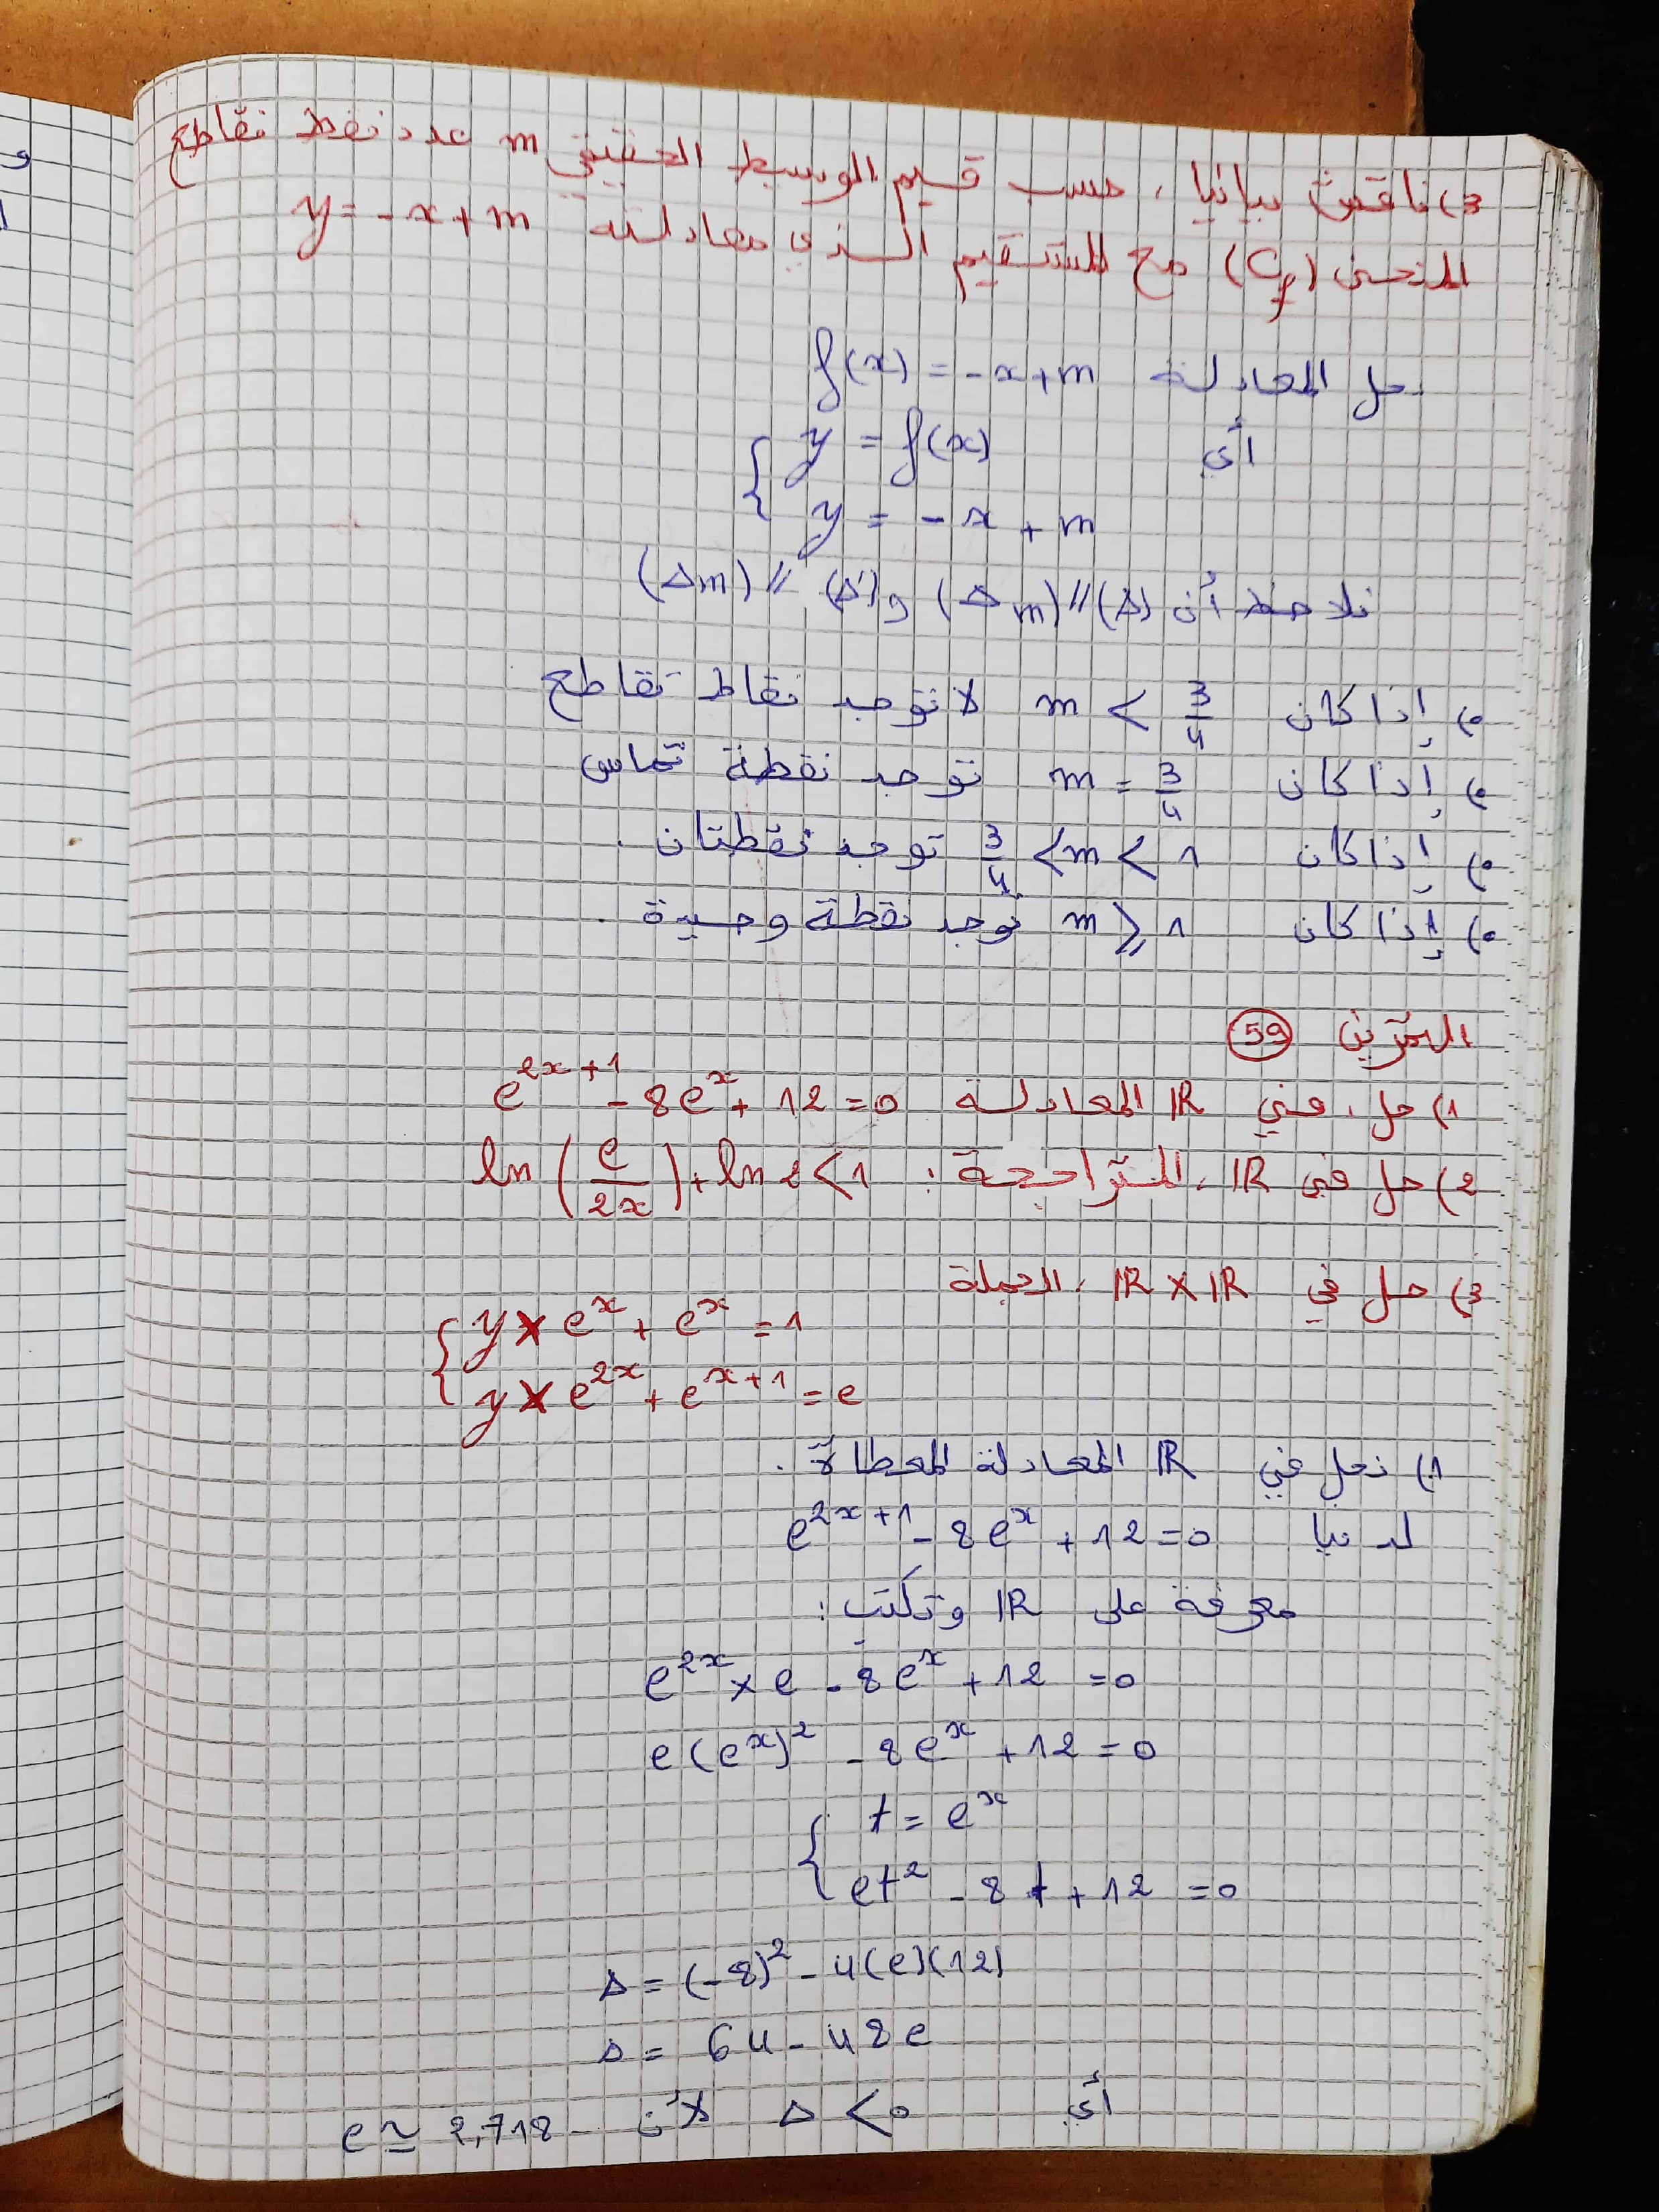 3) ناقش بيانيا، حسب قيم الوسيط الحقيقي m عدد نقط تقاطع
المنحنى (Cf) مع المستقيم الذي معادلته y = -x + m
حل المعادلة f(x) = -x + m
أي { y = f(x)
y = -x + m
نلاحظ أن (Δ) // (Δm) و (Δ') // (Δm)
•) إذا كان m < 3/4 لا توجد نقاط تقاطع
•) إذا كان m = 3/4 توجد نقطة تماس
•) إذا كان 3/4 < m < 1 توجد نقطتان.
•) إذا كان m ⩾ 1 توجد نقطة وحيدة.
التمرين 59
1) حل، في IR المعادلة e^(2x+1) - 8e^x + 12 = 0
2) حل في IR، المتراجحة: ln(e/2x) + ln 2 < 1
3) حل في IR × IR، الجملة
{ y × e^x + e^x = 1
y × e^(2x) + e^(x+1) = e
1) نحل في IR المعادلة المعطاة.
لدينا e^(2x+1) - 8e^x + 12 = 0
معرفة على IR وتكتب:
e^(2x) × e - 8e^x + 12 = 0
e(e^x)^2 - 8e^x + 12 = 0
{ t = e^x
et^2 - 8t + 12 = 0
Δ = (-8)^2 - 4(e)(12)
Δ = 64 - 48e
أي Δ < 0 لأن e ≃ 2,718